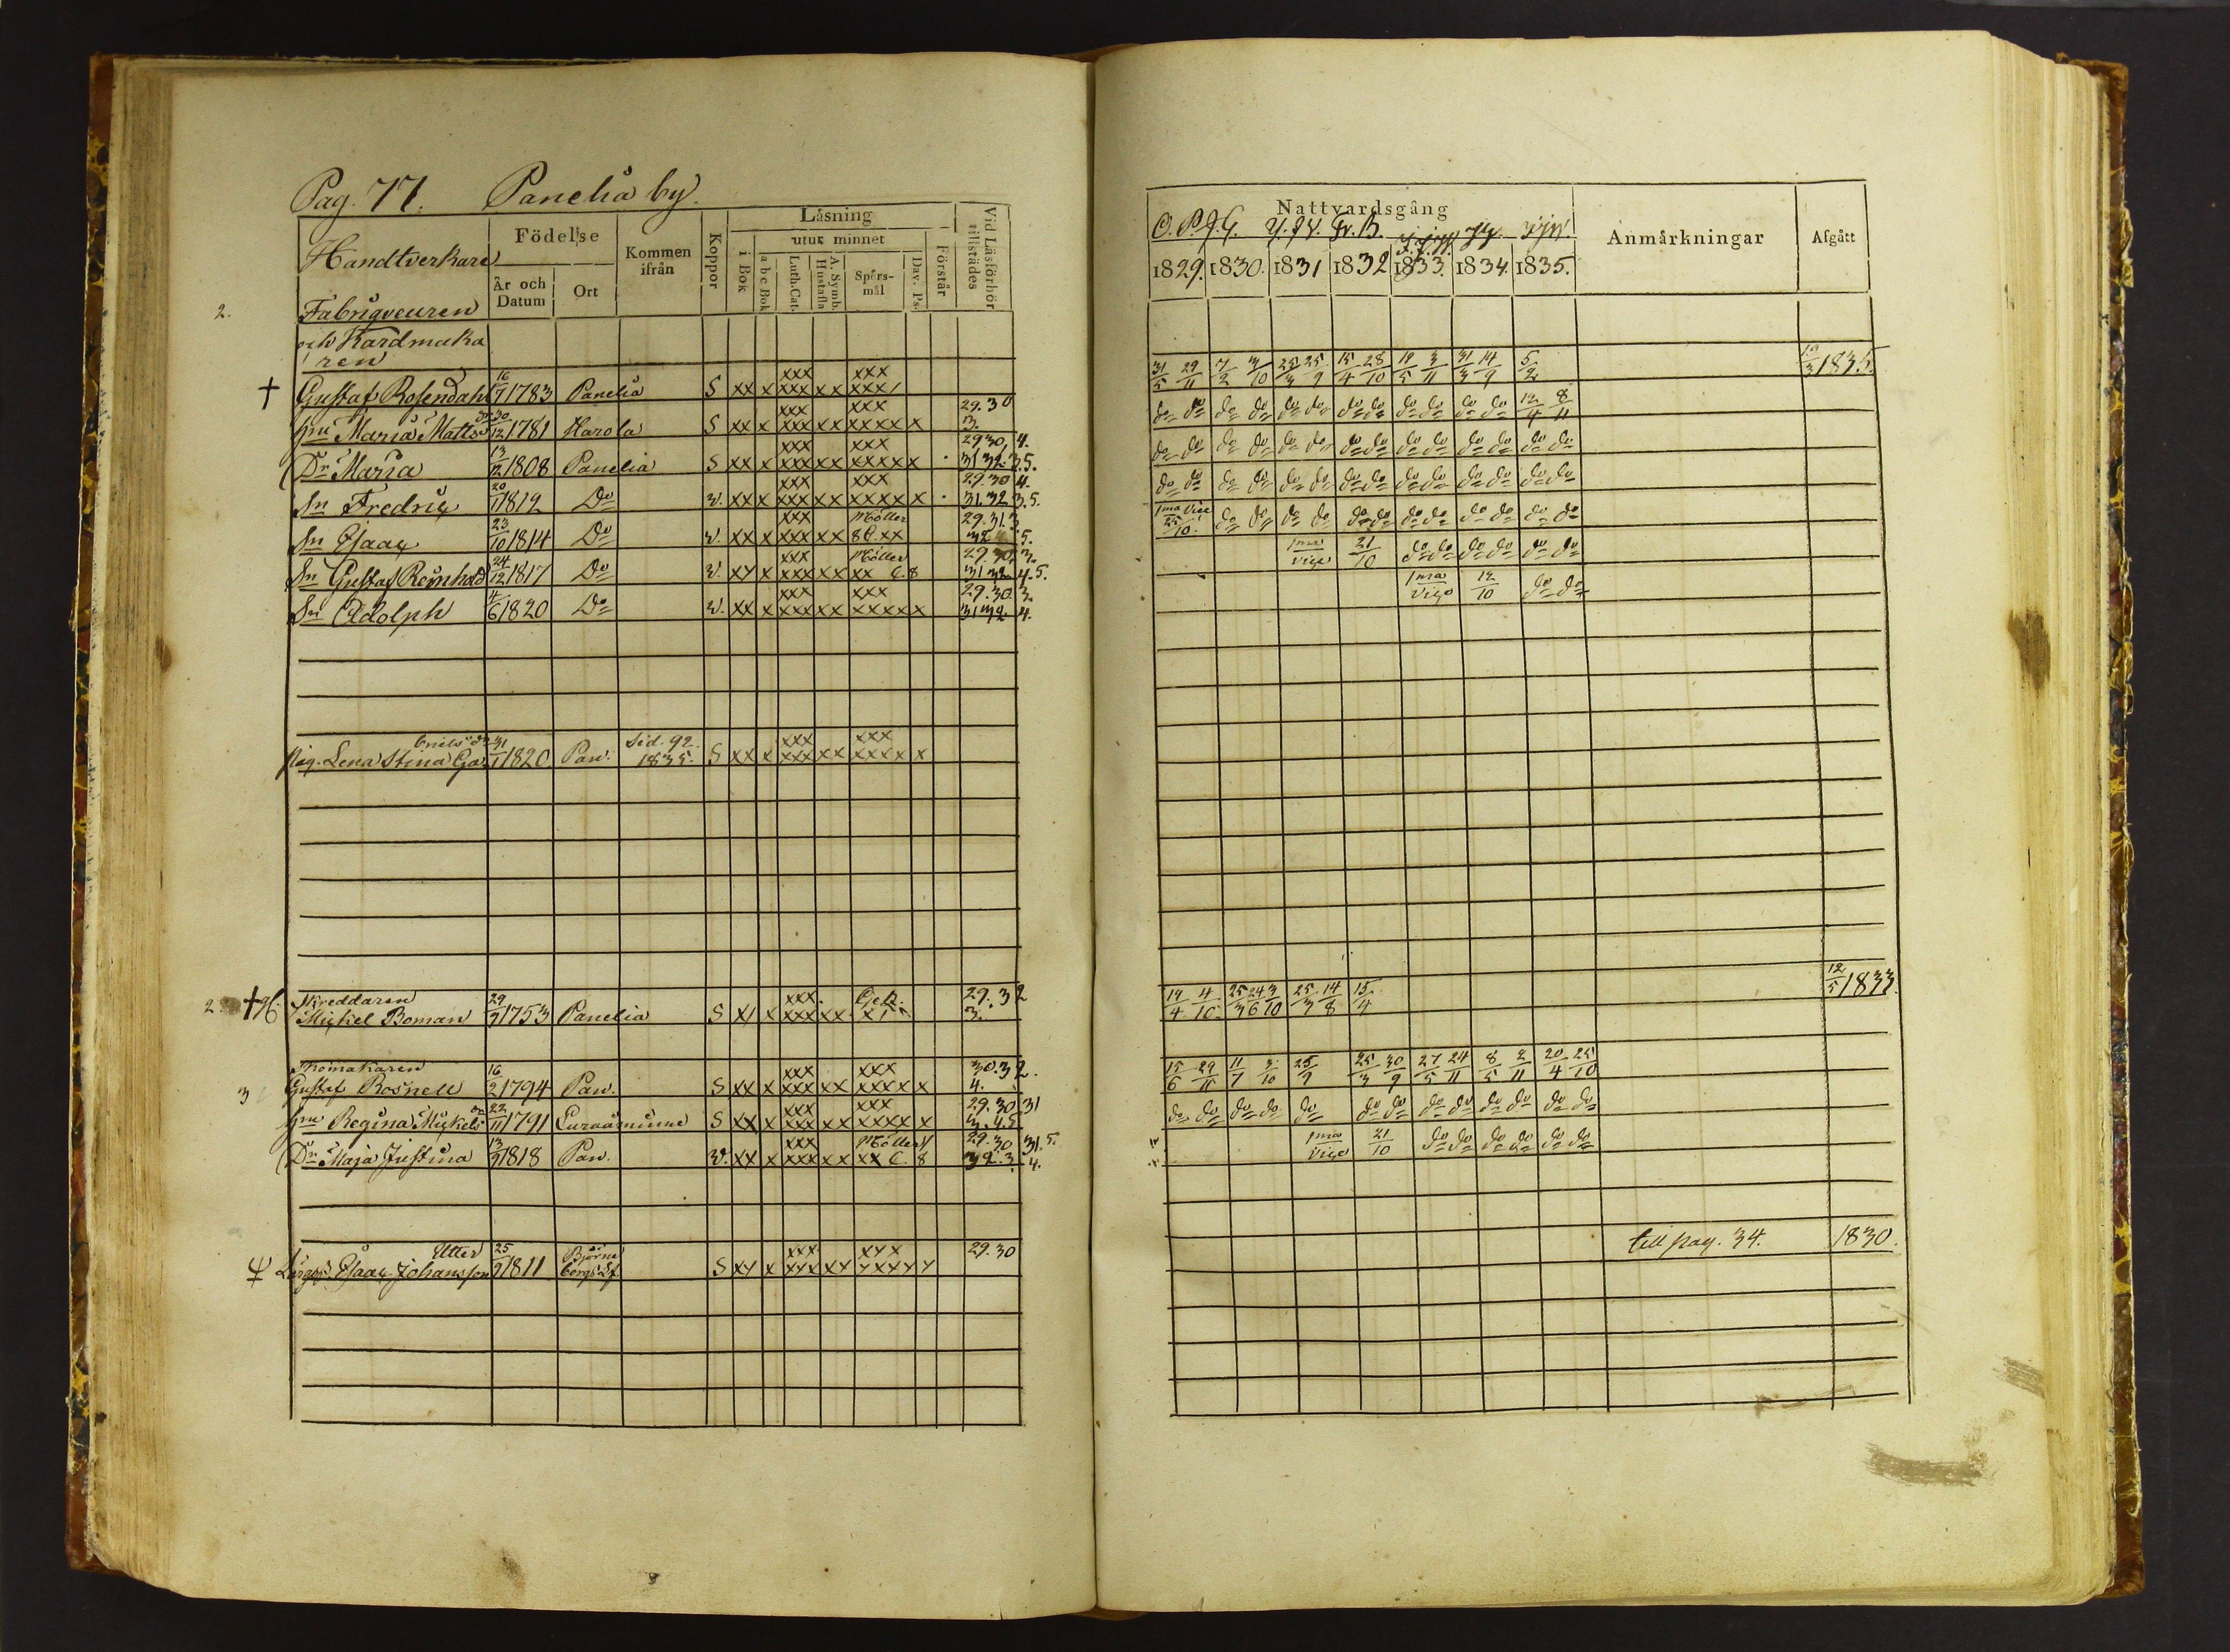 Pag. 77. Panelia by.
Handtverkare
Födelse
Kommen ifrån
Koppor
Läsning
i Bok
utur minnet
a b c Bok
Luth. Cat.
A. Symb. Hustafla
Spörs-mål
Dav. Ps.
Förstår
Vid Läsförhör tillstädes
År och Datum
Ort
2. Fabriqveuren
och Kardmaka
ren
† Gustaf Rosendahl 16/7 1783 Panelia S xx x xxx xxx xx xxx xxx/
hu Maria Mattsdr 30/12 1781 Harola S xx x xxx xxx xx xxx xxxx x 29. 30 3.
Dr Maria 13/12 1808 Panelia S xx x xxx xxx xx xxx xxxx x 29 30, 4. 31 32. 3. 5.
Sn Fredric 20/7 1812 Do v. xx x xxx xxx xx xxx xxxx x 29. 30 4. 31. 32 3. 5.
Sn Isaac 23/10 1814 Do v. xx x xxx xxx xx Möller 8 C. xx 29. 31. 3. 32 4 5.
Sn Gustaf Reinhold 24/12 1817 Do v. xx x xxx xxx xx Möller xx C. 8 29. 30. 3. 31 32. 4. 5.
Sn Adolph 4/6 1820 Do v. xx x xxx xxx xx xxx xxxx x 29. 30. 3. 31 32. 4.
Pig. Lena Stina 31/1 1820 Pan. Sid. 92. 1835. S xx x xxx xxx xx xxx xxxx x
2. † 96. Skreddaren
Mickel Boman 29/9 1753 Panelia S x/ x xxx xxx xx 29. 32 3.
Skomakaren
3 Gustaf Rosnell 16/2 1794 Pan. S xx x xxx xxx xx xxx xxxx x 30. 32. 4.
hu Regina Mickelsdr 22/11 1791 Euraåminne S xx x xxx xxx xx xxx xxxx x 29. 30 31 3. 4. 5.
Dr Maja Justina 13/9 1818 Pan. v. xx x xxx xxx xx Möller xx C. 8 29. 30 31. 5. 32. 3. 4.
Utter
Isaac Johansson 25/9 1811 Björneborgs Lf. S xx x xxx xxx xx xxx xxxx x 29. 30
Nattvardsgång
Anmärkningar
Afgått
1829. 1830. 1831 1832 1833. 1834. 1835.
31/5 29/11 7/2 3/10 25/3 25/9 15/4 28/10 19/5 3/11 31/3 14/9 5/2 1835.
do do do do do do do do do do do do 12/4 8/11
do do do do do do do do do do do do do do
do do do do do do do do do do do do do do
1ma vice 25/10 do do do do do do do do do do do do
1ma vice 21/10 do do do do do do
1ma vice 12/10 do do
19/4 4/10 25/3 24/6 3/10 25/3 14/8 15/4 12/5 1833.
15/6 29/11 11/7 3/10 25/9 25/3 30/9 27/5 24/11 8/5 2/11 20/4 25/10
do do do do do do do do do do do do do
1ma vice 21/10 do do do do do do
till pag. 34. 1830.